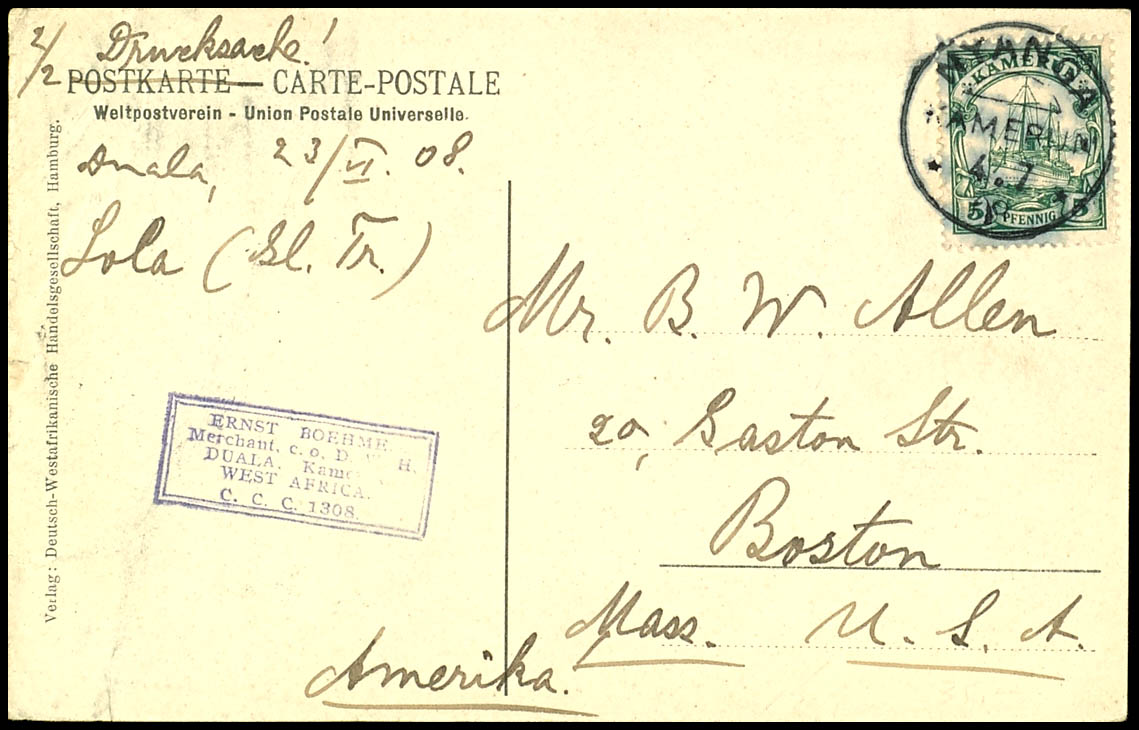 2/2 Drucksache!
POSTKARTE — CARTE-POSTALE
Weltpostverein - Union Postale Universelle.
Duala, 23/VI. 08.
Lola (Gl. Tr.)
Verlag: Deutsch-Westafrikanische Handelsgesellschaft, Hamburg.
KAMERUN
5 PFENNIG 5
KAMERUN
4.7
Mr. B. W. Allen
20, Gaston Str.
Boston
Mass. U. S. A.
Amerika.
ERNST BOEHME
Merchant, c. o. D. W. H.
DUALA. Kame
WEST AFRICA.
C. C. C. 1308.